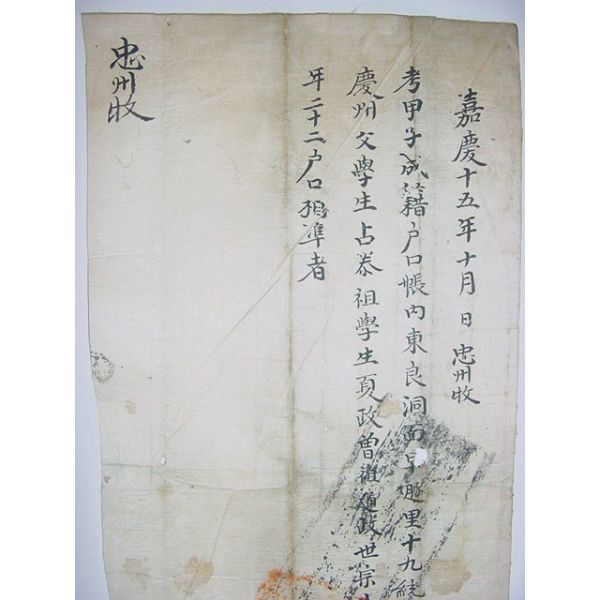 嘉慶十五年十月 日 忠州牧
考甲子成籍戶口帳內東良洞面早遯里十九統
慶州父學生占泰祖學生夏政曾祖道政世宗
年二十二戶口相準者
忠州牧